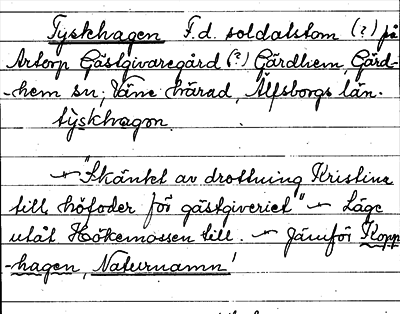 Tyskhagen F.d. soldatstom (?) på
Artorp Gästgivaregård (?) Gärdhem, Gärd-
-hem sn; Väne härad, Älfsborgs län.
tỳskhagən.
"Skänkt av drottning Kristina
till höfoder för gästgiveriet" Läge
utåt Hökemossen till. Jämför Klopp
-hagen, Naturnamn!